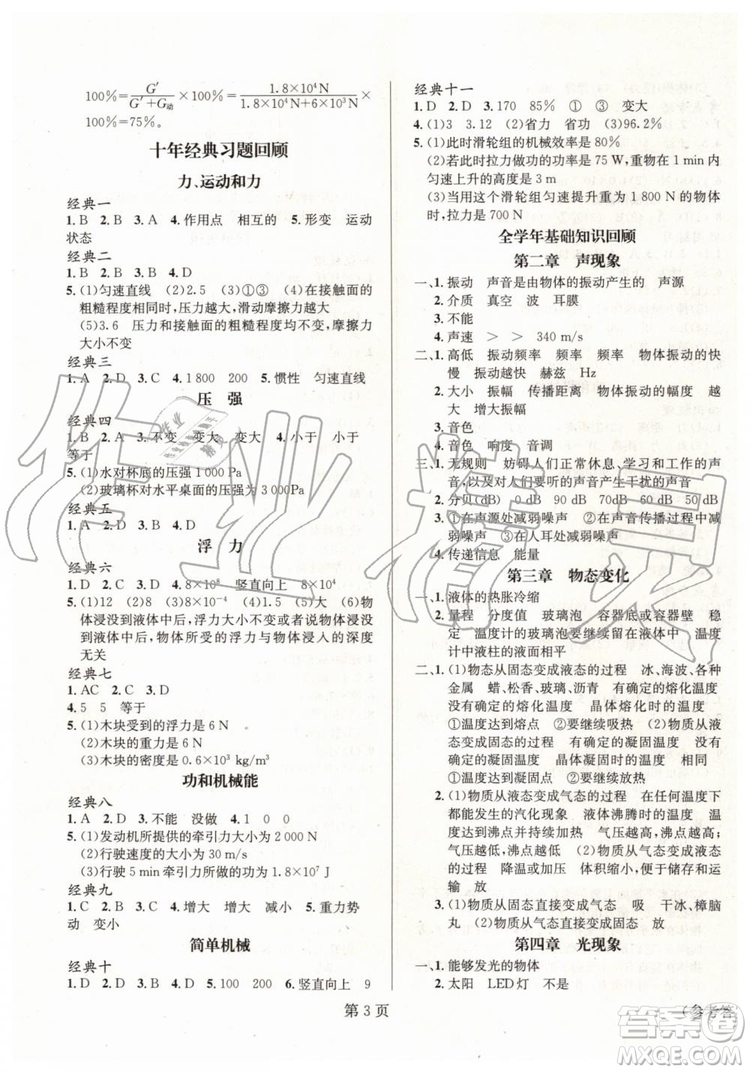 100%=G′/(G′+G动)×100%=1.8×10⁴N/(1.8×10⁴N+6×10³N)×
100%=75%。
十年经典习题回顾
力、运动和力
经典一
1.B 2.B 3.A 4.作用点 相互的 5.形变 运动
状态
经典二
1.B 2.D 3.D 4.B
5.(1)匀速直线 (2)2.5 (3)①③ (4)在接触面的
粗糙程度相同时,压力越大,滑动摩擦力越大
(5)3.6 压力和接触面的粗糙程度不变,摩擦力
大小不变
经典三
1.A 2.D 3.C 4.1 800 200 5.惯性 匀速直线
压 强
经典四
1.B 2.A 3.不变 变大 变大 4.小于 小于
等于
5.(1)水对杯底的压强1 000 Pa
(2)玻璃杯对水平桌面的压强为3 000 Pa
经典五
1.A 2.D 3.B 4.D
浮 力
经典六
1.D 2.C 3.D 4.8×10⁸ 竖直向上 10⁴
5.(1)12 (2)8 (3)8×10⁻⁴ (4)增大 (5)大 (6)物
体浸没在液体中后,浮力不变或者说物体浸没在
液体中后,物体所受的浮力与物体浸入的深度
无关
经典七
1.AC 2.D 3.C
4.5 5 等于
5.(1)木块受到的浮力是6 N
(2)木块的重力是6 N
(3)木块的密度是0.6×10³ kg/m³
功和机械能
经典八
1.A 2.D 3.不能 没做 4.1 0 0
5.(1)发动机所提供的牵引力大小为2 000 N
(2)行驶速度的大小为30 m/s
(3)行驶5 min牵引力所做的功为1.8×10⁷ J
经典九
1.D 2.B 3.C 4.增大 增大 减小 5.重力势
动 变小
简单机械
经典十
1.A 2.D 3.B 4.D 5.100 200 6.竖直向上 9
经典十一
1.D 2.D 3.170 85% ① ③ 变大
4.(1)3 3.12 (2)省力 省功 (3)96.2%
5.(1)此时滑轮组的机械效率是80%
(2)若此时拉力做功的功率是75 W,重物在1 min内
匀速上升的高度是3 m
(3)用这个滑轮组匀速提升重为1 800 N的物体
时,拉力是700 N
全学年基础知识回顾
第二章 声现象
一、1.振动 声音是由物体的振动产生的 声源
2.介质 真空 波 耳膜
3.不能
4.声速 > > 340 m/s
二、1.高低 振动频率 频率 频率 物体振动的快
慢 振动越快 赫兹 Hz
2.大小 振幅 传播距离 物体振动的幅度 越
大 增大振幅
3.音色
4.音色 响度 音调
三、1.无规则 妨碍人们正常休息、学习和工作的声
音,以及对人们要听的声音产生干扰的声音
2.分贝(dB) 90 dB 70 dB 50 dB
3.①在声源处减弱噪声 ②在声音传播过程中减
弱噪声 ③在人耳处减弱噪声
4.传递信息 能量
第三章 物态变化
一、1.液体的热胀冷缩
2.量程 分度值 玻璃泡 容器底或容器壁 稳
定 温度计的玻璃泡要继续留在液体中 温度
计中液柱的液面相平
二、1.(1)物态从固态变成液态的过程 冰、海波、各种
金属 蜡、松香、玻璃、沥青 有确定的熔化温度
没有确定的熔化温度 晶体熔化时的温度
①温度达到熔点 ②要继续吸热 (2)物质从液
态变成固态的过程 有确定的凝固温度 没有
确定的凝固温度 晶体凝固时的温度 ①温度
达到凝固点 ②要继续放热
2.(1)物质从液态变成气态的过程 在任何温度下
都能发生的汽化现象 液体沸腾时的温度
①温度达到沸点 ②要继续吸热 气压越高,沸点越高
气压越低,沸点越低 (2)物质从气态变成液态的
过程 降温或加压 体积缩小,便于储存和运
输 放
3.(1)物质从固态直接变成气态 吸 干冰、樟脑
丸 (2)物质从气态直接变成固态 放
第四章 光现象
一、1.能够发光的物体
2.太阳 LED灯 不是 不是
第 3 页
(参考答
作业精灵
答案圈
MXQE.COM